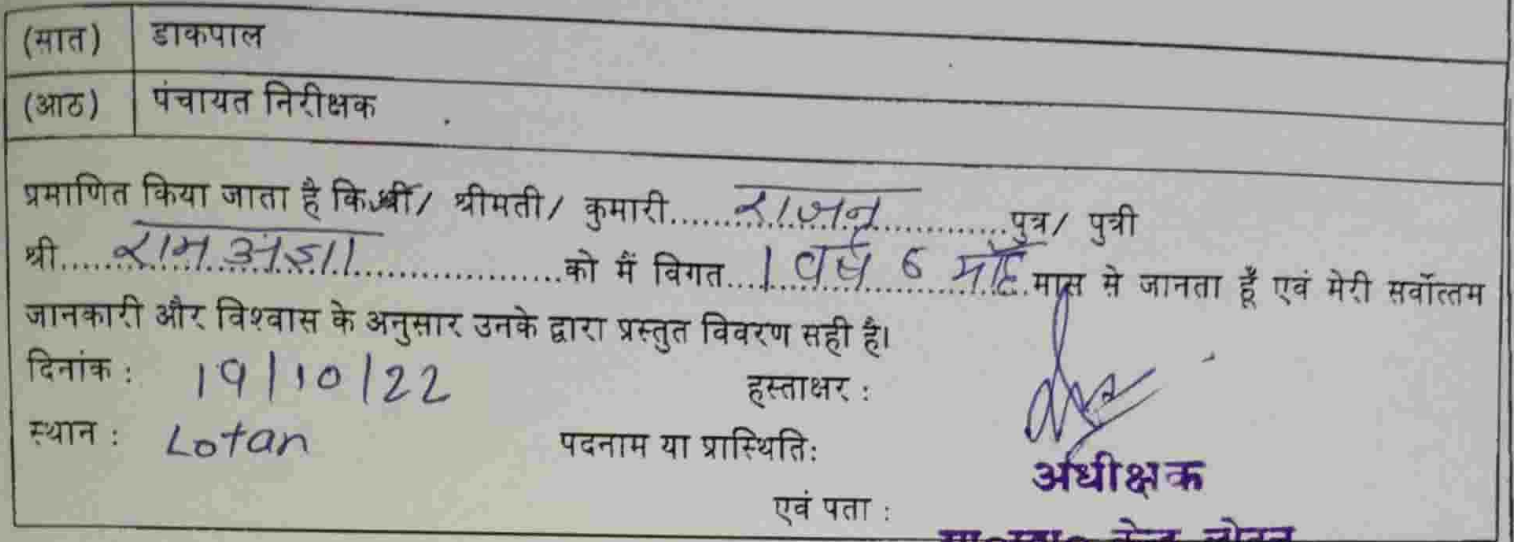 (सात) डाकपाल
(आठ) पंचायत निरीक्षक
प्रमाणित किया जाता है कि श्री/ श्रीमती/ कुमारी......राजन............पुत्र/ पुत्री
श्री.....राम अज्ञा..................को मैं विगत....1 वर्ष 6 माह.मास से जानता हूँ एवं मेरी सर्वोत्तम
जानकारी और विश्वास के अनुसार उनके द्वारा प्रस्तुत विवरण सही है।
दिनांक : 19/10/22 हस्ताक्षर :
स्थान : Lotan पदनाम या प्रास्थिति:
अधीक्षक
एवं पता :